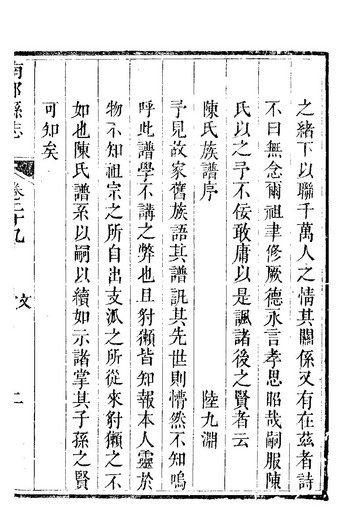 之緒下以聯千萬人之情其關係又有在茲者詩
不曰無念爾祖聿修厥德永言孝思昭哉嗣服陳
氏以之予不佞敢庸以是諷諸後之賢者云
陳氏族譜序 陸九淵
予見故家舊族語其譜訊其先世則懵然不知嗚
呼此譜學不講之弊也且豺獺皆知報本人靈於
物不知祖宗之所自出支派之所從來豺獺之不
如也陳氏譜系以嗣以續如示諸掌其子孫之賢
可知矣
南部縣志 卷二十九 文 二